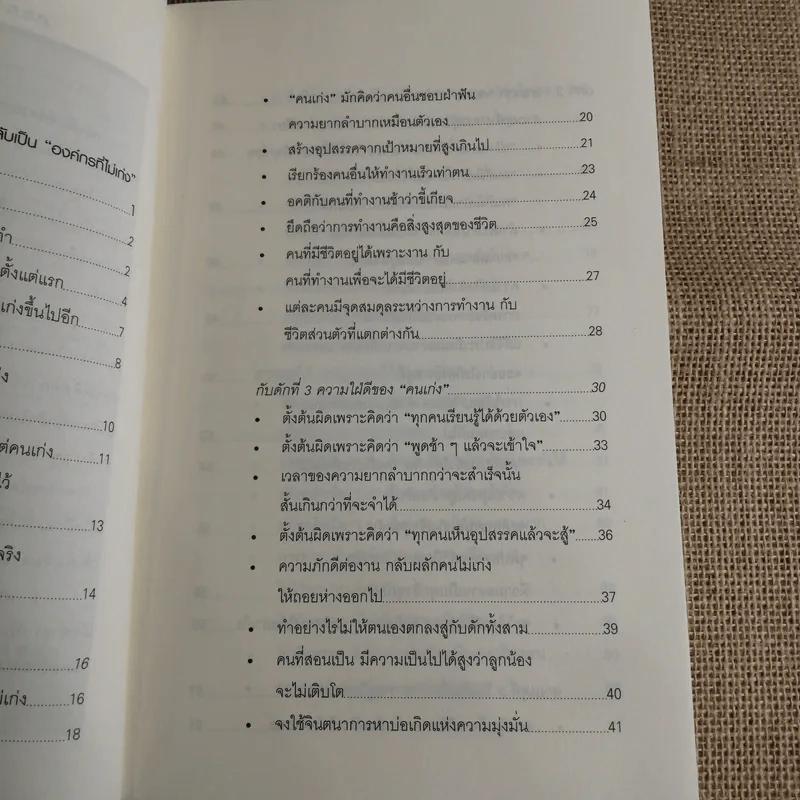 ลับเป็น “องค์กรที่ไม่เก่ง”
1
2
ทำ 2
ตั้งแต่แรก 4
เก่งขึ้นไปอีก 7
8
10
ต่คนเก่ง 11
ไว้
13
จริง
14
16
ม่เก่ง 16
18
• “คนเก่ง” มักคิดว่าคนอื่นชอบฝ่าฟัน
ความยากลำบากเหมือนตัวเอง 20
• สร้างอุปสรรคจากเป้าหมายที่สูงเกินไป 21
• เรียกร้องคนอื่นให้ทำงานเร็วเท่าตน 23
• อคติกับคนที่ทำงานช้าว่าขี้เกียจ 24
• ยึดถือว่าการทำงานคือสิ่งสูงสุดของชีวิต 25
• คนที่มีชีวิตอยู่ได้เพราะงาน กับ
คนที่ทำงานเพื่อจะได้มีชีวิตอยู่ 27
• แต่ละคนมีจุดสมดุลระหว่างการทำงาน กับ
ชีวิตส่วนตัวที่แตกต่างกัน 28
กับดักที่ 3 ความใฝ่ดีของ “คนเก่ง” 30
• ตั้งต้นผิดเพราะคิดว่า “ทุกคนเรียนรู้ได้ด้วยตัวเอง” 30
• ตั้งต้นผิดเพราะคิดว่า “พูดช้า ๆ แล้วจะเข้าใจ” 33
• เวลาของความยากลำบากกว่าจะสำเร็จนั้น
สั้นเกินกว่าที่จะจำได้ 34
• ตั้งต้นผิดเพราะคิดว่า “ทุกคนเห็นอุปสรรคแล้วจะสู้” 36
• ความภักดีต่องาน กลับผลักคนไม่เก่ง
ให้ถอยห่างออกไป 37
• ทำอย่างไรไม่ให้ตนเองตกลงสู่กับดักทั้งสาม 39
• คนที่สอนเป็น มีความเป็นไปได้สูงว่าลูกน้อง
จะไม่เติบโต 40
• จงใช้จินตนาการหาบ่อเกิดแห่งความมุ่งมั่น 41